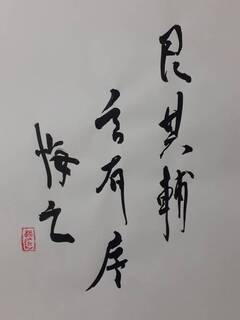 艮其輔
言有序
悔亡